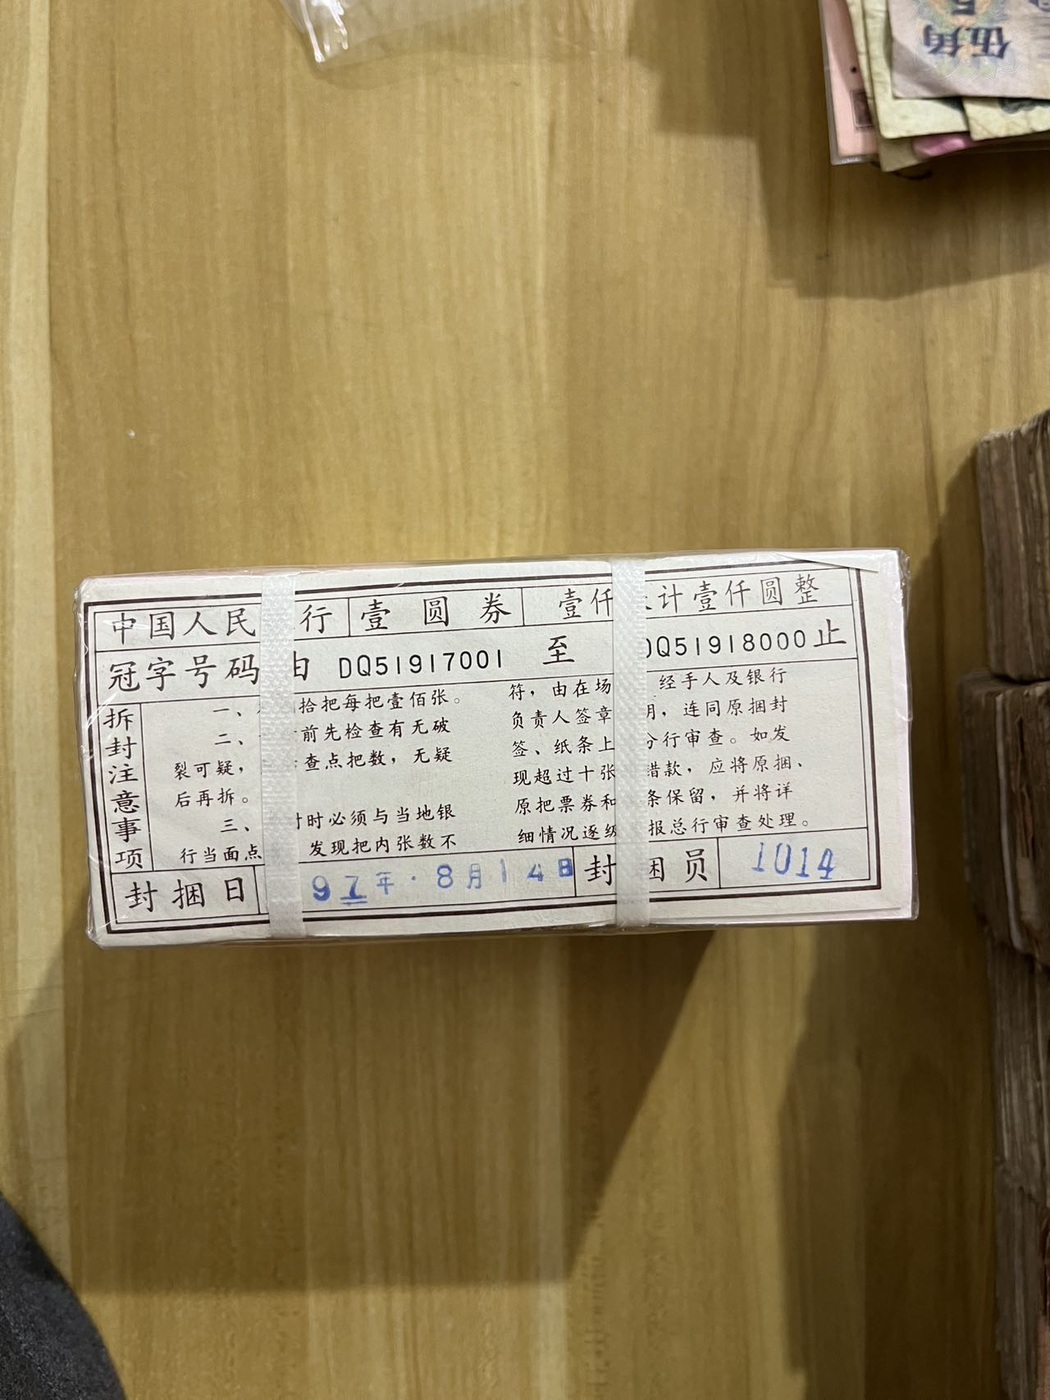 中国人民 行 壹圆券 壹仟 计壹仟圆整
冠字号码 由 DQ51917001 至 DQ51918000止
拆封注意事项
一、 拾把每把壹佰张。
二、 前先检查有无破
裂可疑, 查点把数,无疑
后再拆。
三、 时必须与当地银
行当面点 发现把内张数不
符,由在场 经手人及银行
负责人签章 明,连同原捆封
签、纸条上 分行审查。如发
现超过十张 错款,应将原捆、
原把票券和 条保留,并将详
细情况逐级 报总行审查处理。
封捆日 97年·8月14日 封 捆员 1014
伍角